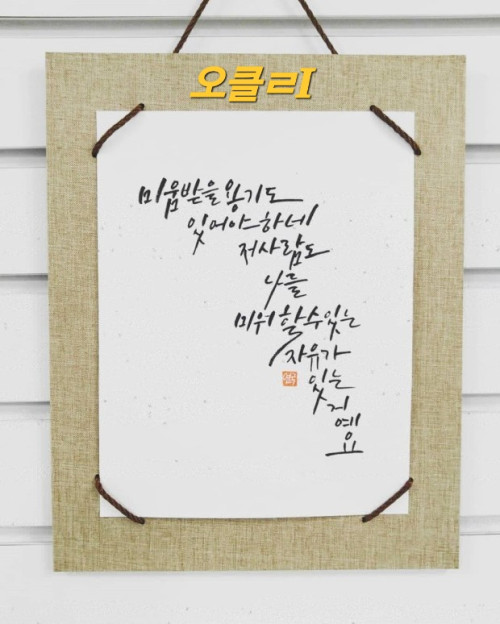 오클ㄹI
미움받을 용기도
있어야하네
저사람도
나를
미워 할수있는
자유가
있는
거
예
요